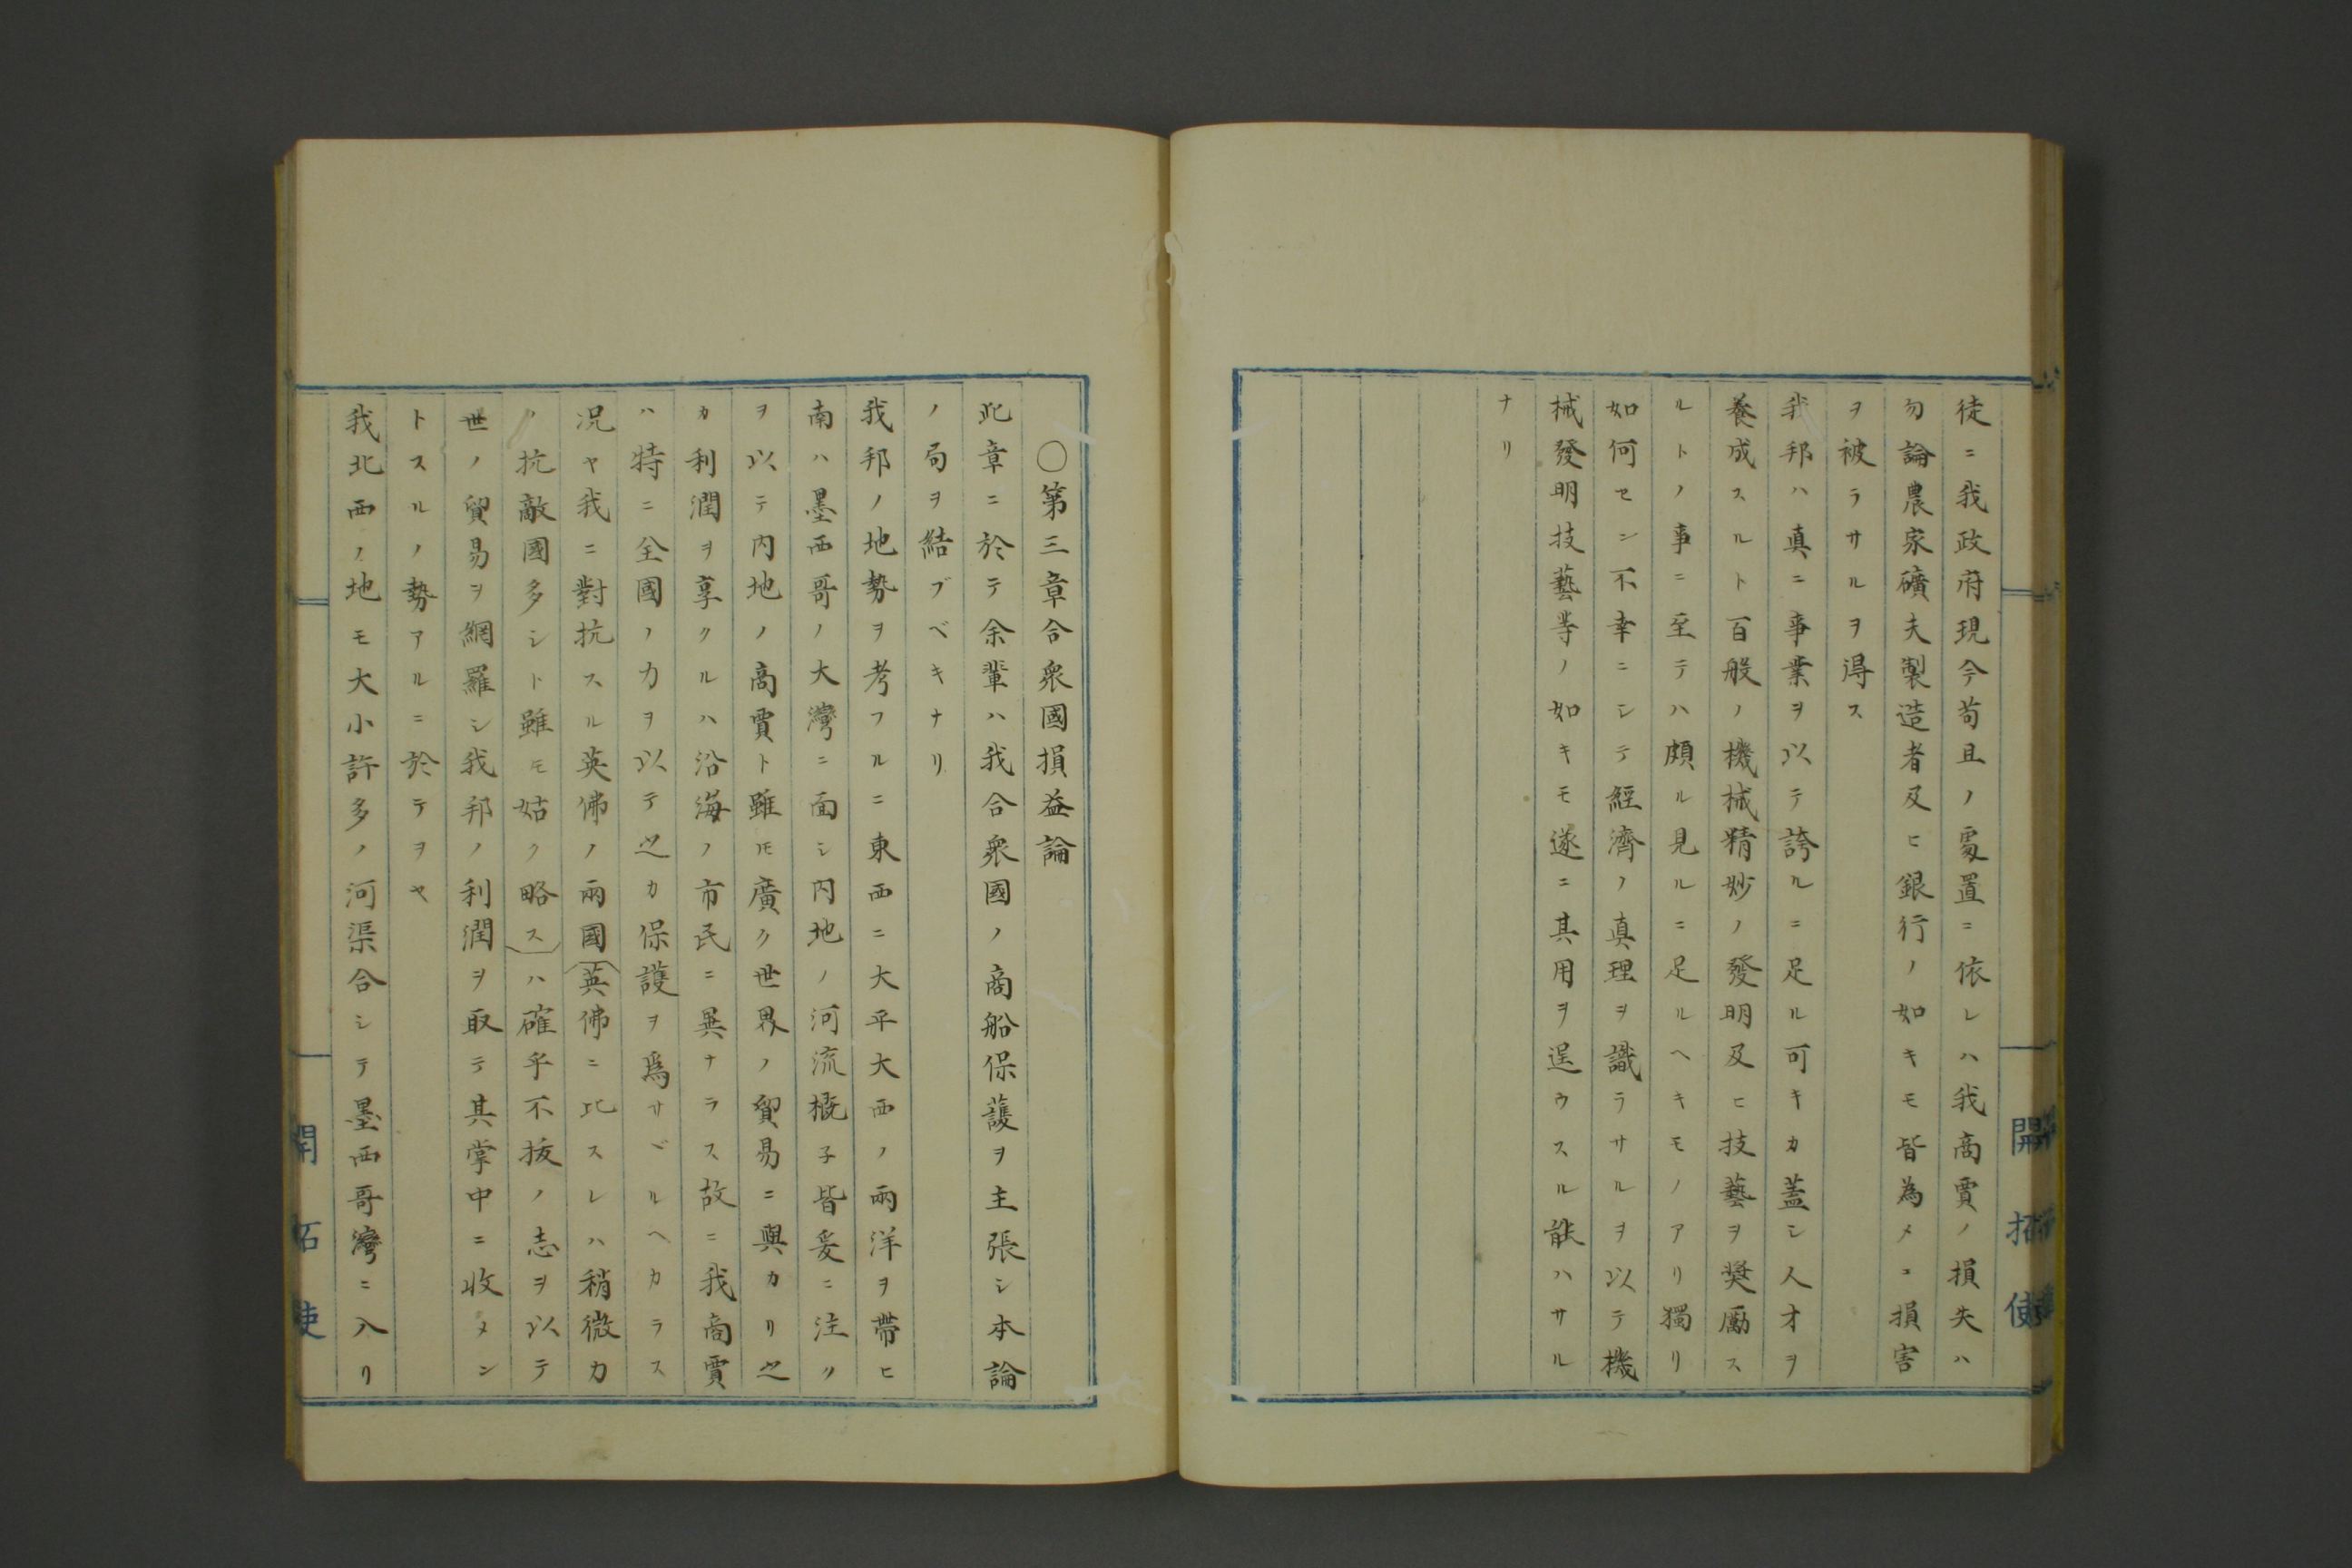 徒ニ我政府現今苟且ノ處置ニ依レハ我商賈ノ損失ハ
勿論農家礦夫製造者及ヒ銀行ノ如キモ皆為メニ損害
ヲ被ラサルヲ得ス
我邦ハ真ニ事業ヲ以テ誇ルニ足ル可キカ蓋シ人才ヲ
養成スルト百般ノ機械精妙ノ發明及ヒ技藝ヲ奬勵ス
ルトノ事ニ至テハ頗ル見ルニ足ルヘキモノアリ獨リ
如何セン不幸ニシテ經濟ノ真理ヲ識ラサルヲ以テ機
械發明技藝等ノ如キモ遂ニ其用ヲ逞ウスル能ハサル
ナリ
開拓使
○第三章合衆國損益論
此章ニ於テ余輩ハ我合衆國ノ商船保護ヲ主張シ本論
ノ局ヲ結ブベキナリ
我邦ノ地勢ヲ考フルニ東西ニ大平大西ノ兩洋ヲ帶ヒ
南ハ墨西哥ノ大灣ニ面シ内地ノ河流概子皆爰ニ注ク
ヲ以テ内地ノ商賈ト雖𪜈廣ク世界ノ貿易ニ與カリ之
カ利潤ヲ享クルハ沿海ノ市民ニ異ナラス故ニ我商賈
ハ特ニ全國ノ力ヲ以テ之カ保護ヲ爲サヾルヘカラス
况ヤ我ニ對抗スル英佛ノ兩國(英佛ニ比スレハ稍微力
ノ抗敵國多シト雖モ姑ク略ス)ハ確乎不抜ノ志ヲ以テ
世ノ貿易ヲ網羅シ我邦ノ利潤ヲ取テ其掌中ニ收メン
トスルノ勢アルニ於テヲヤ
我北西ノ地モ大小許多ノ河渠合シテ墨西哥灣ニ入リ
開拓使